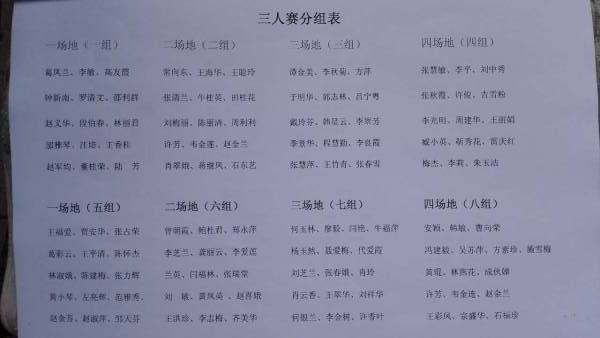 三人赛分组表
一场地（一组） 二场地（二组） 三场地（三组） 四场地（四组）
葛凤兰、李敏、高友霞 常向东、王海华、王聪玲 谭金美、李秋菊、方萍 张慧敏、李平、刘中秀
钟新南、罗清文、邵利群 张清兰、牛桂英、田桂花 于明华、郭志林、吕宁粤 张秋霞、许俊、古雪粉
赵义华、段伯春、林丽君 刘梅丽、陈丽清、周利利 戴玲芬、韩星云、李崇芳 李光明、周建华、王丽娟
邹雅琴、汪培、王香桂 许芳、韦金莲、赵金兰 李景华、程慧勤、李良霞 臧小英、靳秀花、雷庆红
赵军均、董桂荣、陆 芳 肖翠娥、蒋继凤、石东艺 张慧萍、王竹青、张春雪 梅杰、李莉、朱玉沽
一场地（五组） 二场地（六组） 三场地（七组） 四场地（八组）
王福爱、贾安华、张占荣 曾朝霞、鲍桂君、郑永萍 何玉林、廖毅、闫艳、牛福萍 安颖、韩敏、曹向荣
葛彩云、王平清、陈怀杰 李芝兰、龚丽云、李爱莲 杨玉然、聂爱梅、代爱霞 冯建毅、吴苏萍、方素珍、施雪梅
林淑娥、陈建梅、张力辉 兰英、闫福林、张瑞棠 刘芝兰、张春娥、肖玲 黄琨、林燕花、成伙娣
黄小琴、左亮辉、范雅秀、 刘 敏、黄凤英、赵喜娥 肖云香、王翠华、刘祥华 许芳、韦金莲、赵金兰
赵金芬、赵淑萍、邹天芬 王洪珍、李志梅、齐美华 何银兰、李会树、许香叶 王彩凤、宗盛华、石福珍